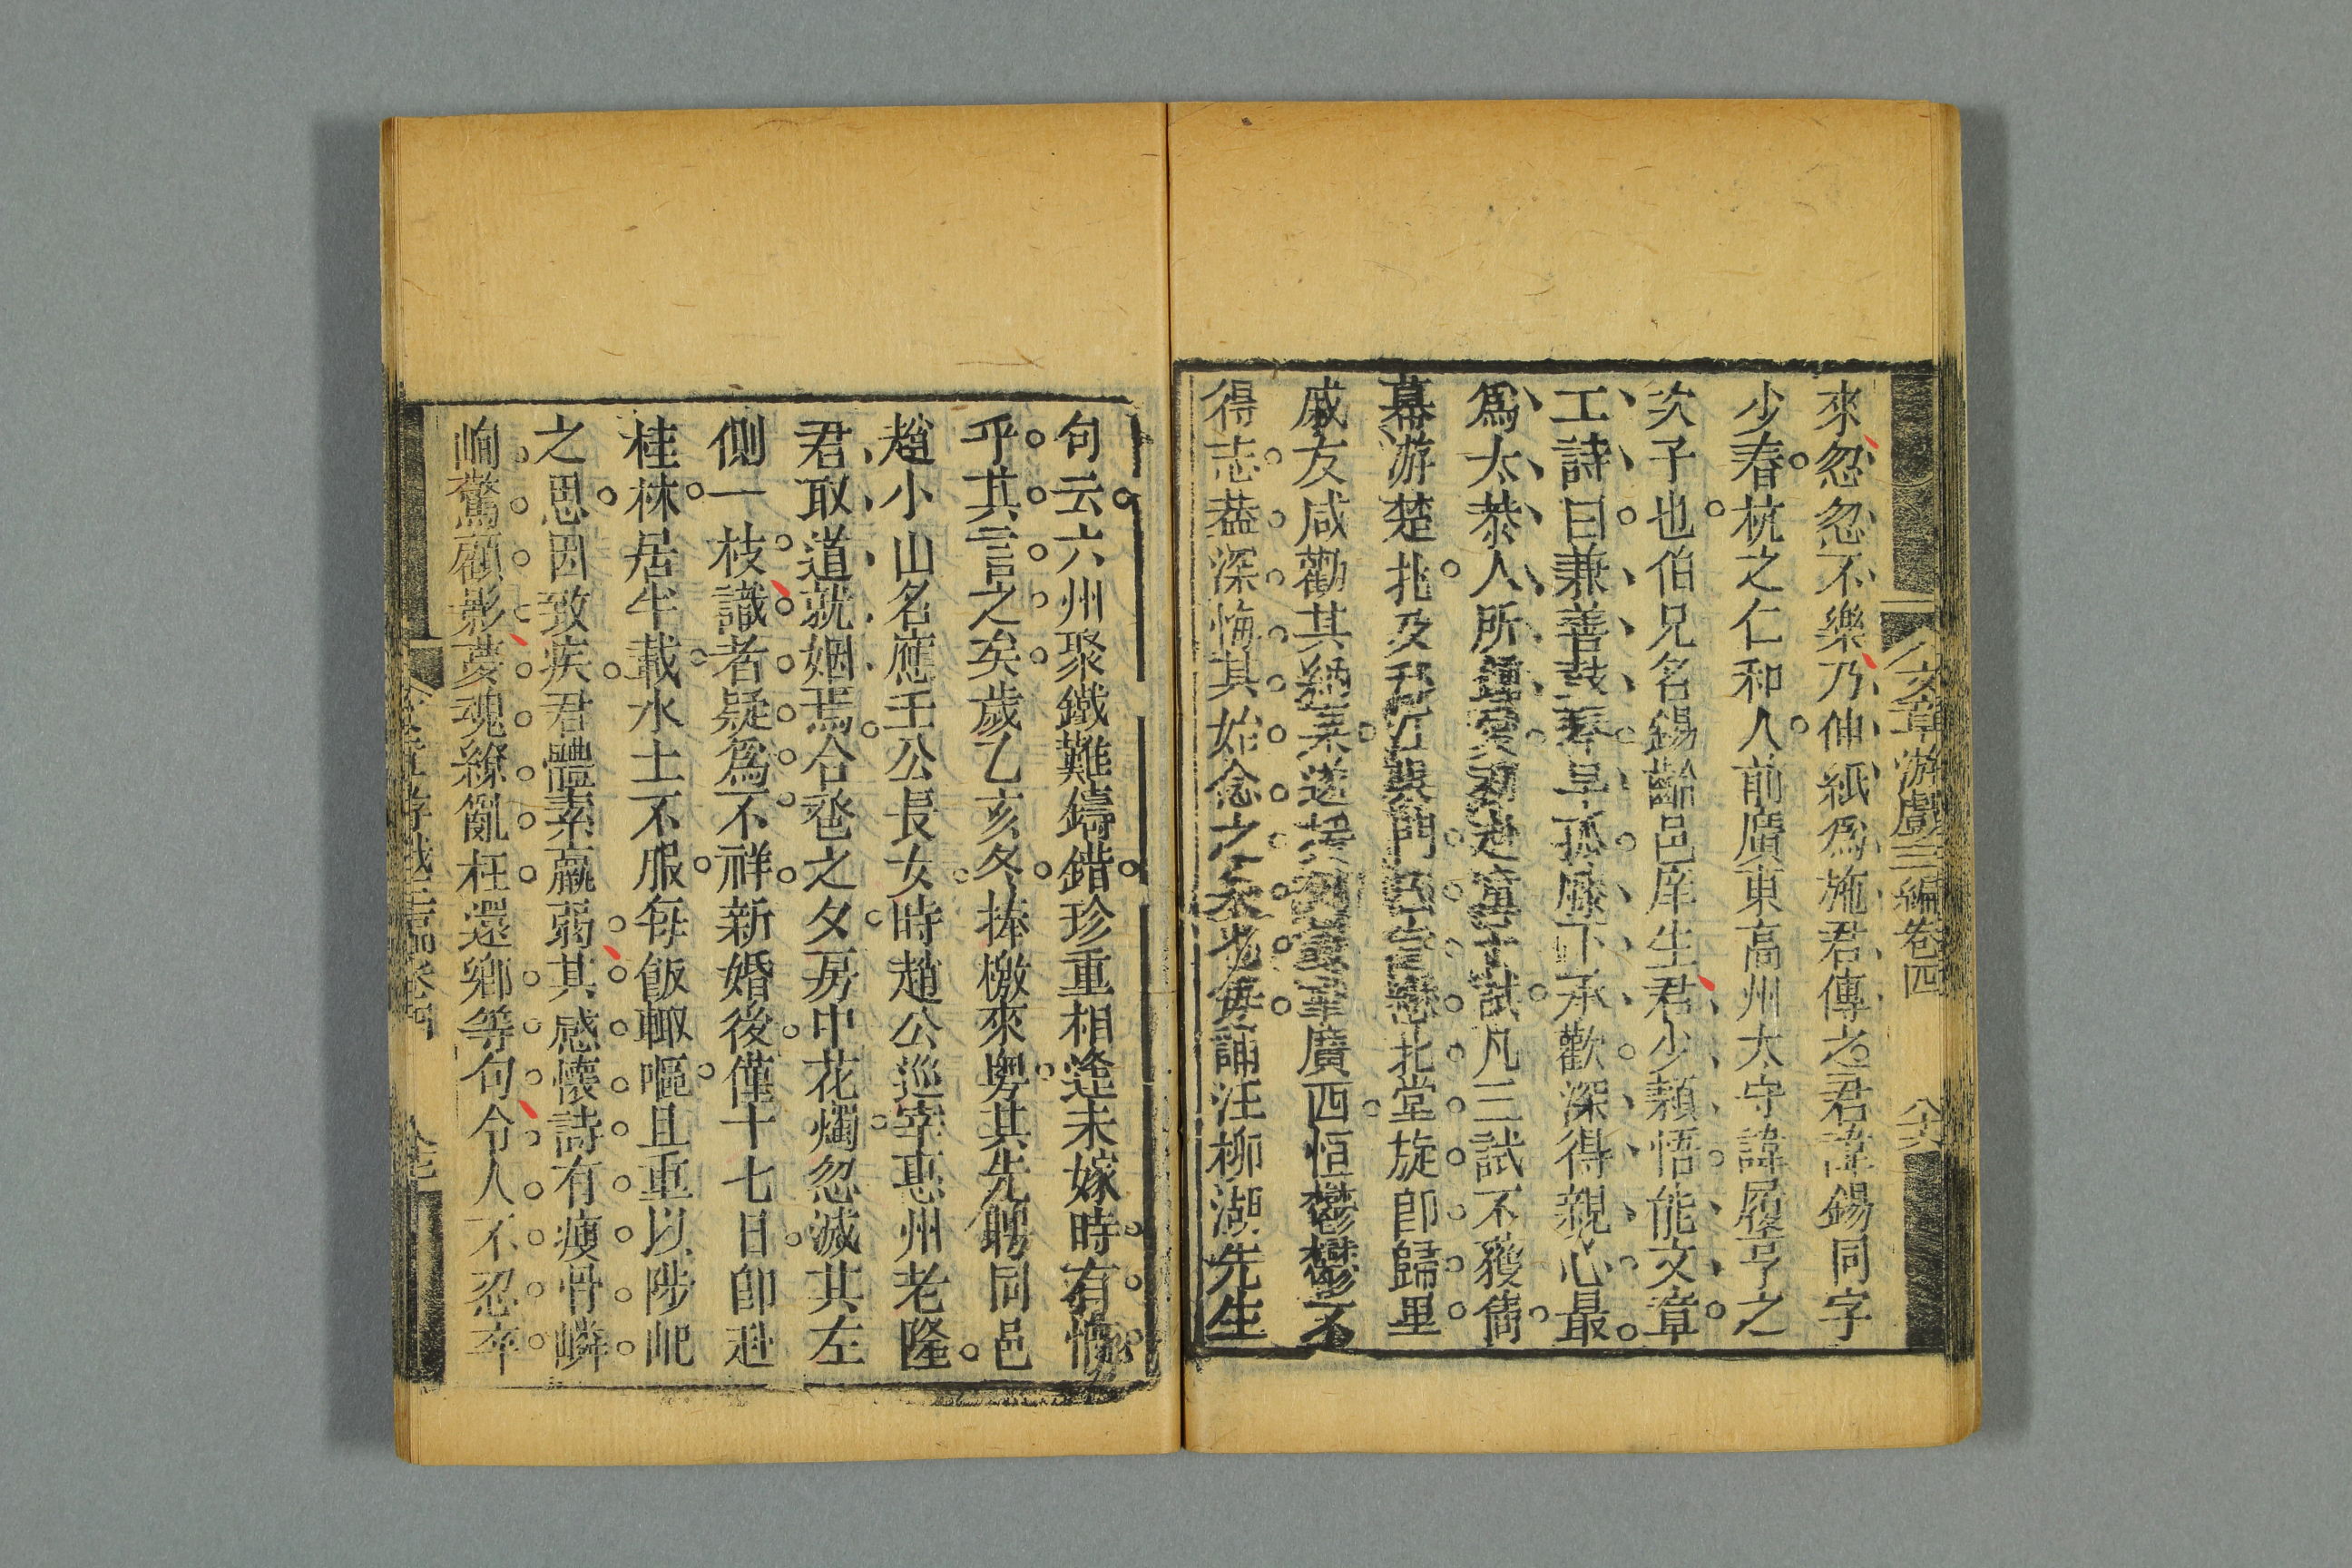 文章游戲三編卷四
來忽忽不樂乃伸紙爲施君傳之君諱錫同字
少春杭之仁和人前廣東高州太守諱履亨之
次子也伯兄名錫齡邑庠生君少穎悟能文章
工詩曰兼善鼓琴早孤膝下承歡深得親心最
爲太恭人所鍾愛初赴童子試凡三試不獲儁
幕游楚北及
門
北堂旋卽歸里
戚友咸勸其
廣西恒鬱鬱不
得志葢深悔其始念之不
每誦汪柳湖先生
句云六州聚鐵難鑄錯珍重相逢未嫁時有慨
乎其言之矣歲乙亥冬捧檄來粵其先聘同邑
趙小山名應壬公長女時趙公巡宰惠州老隆
君取道就姻焉合卺之夕房中花燭忽滅其左
側一枝識者疑爲不祥新婚後僅十七日卽赴
桂林居半載水土不服每飯輒嘔且重以陟屺
之思因致疾君體素羸弱其感懷詩有瘦骨嶙
峋驚顧影夢魂繚亂枉還鄉等句令人不忍卒